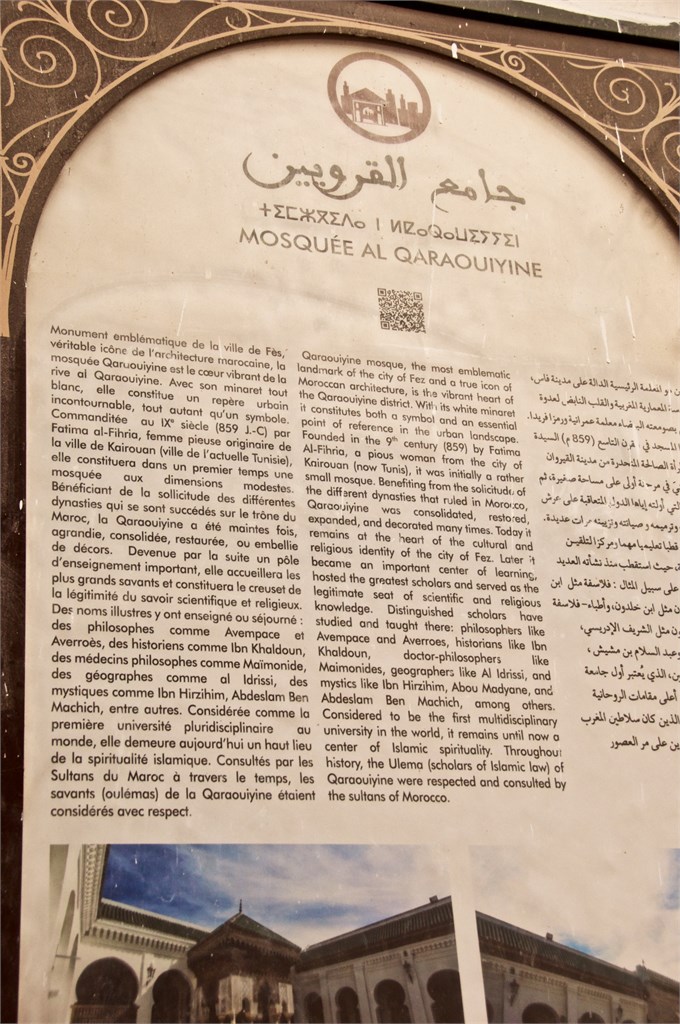 جامع القرويين
ⵜⵉⵎⵣⴳⵉⴷⴰ ⵏ ⵍⵇⴰⵕⴰⵡⵉⵢⵢⵉⵏ
MOSQUÉE AL QARAOUIYINE
Monument emblématique de la ville de Fès,
véritable icône de l'architecture marocaine, la
mosquée Qaruouiyine est le cœur vibrant de la
rive al Qaraouiyine. Avec son minaret tout
blanc, elle constitue un repère urbain
incontournable, tout autant qu'un symbole.
Commanditée au IXᵉ siècle (859 J.-C) par
Fatima al-Fihria, femme pieuse originaire de
la ville de Kairouan (ville de l'actuelle Tunisie),
elle constituera dans un premier temps une
mosquée aux dimensions modestes.
Bénéficiant de la sollicitude des différentes
dynasties qui se sont succédés sur le trône du
Maroc, la Qaraouiyine a été maintes fois,
agrandie, consolidée, restaurée, ou embellie
de décors. Devenue par la suite un pôle
d'enseignement important, elle accueillera les
plus grands savants et constituera le creuset de
la légitimité du savoir scientifique et religieux.
Des noms illustres y ont enseigné ou séjourné :
des philosophes comme Avempace et
Averroès, des historiens comme Ibn Khaldoun,
des médecins philosophes comme Maïmonide,
des géographes comme al Idrissi, des
mystiques comme Ibn Hirzihim, Abdeslam Ben
Machich, entre autres. Considérée comme la
première université pluridisciplinaire au
monde, elle demeure aujourd'hui un haut lieu
de la spiritualité islamique. Consultés par les
Sultans du Maroc à travers le temps, les
savants (oulémas) de la Qaraouiyine étaient
considérés avec respect.
Qaraouiyine mosque, the most emblematic
landmark of the city of Fez and a true icon of
Moroccan architecture, is the vibrant heart of
the Qaraouiyine district. With its white minaret
it constitutes both a symbol and an essential
point of reference in the urban landscape.
Founded in the 9ᵗʰ century (859) by Fatima
Al-Fihria, a pious woman from the city of
Kairouan (now Tunis), it was initially a rather
small mosque. Benefiting from the solicitude of
the different dynasties that ruled in Morocco,
Qaraouiyine was consolidated, restored,
expanded, and decorated many times. Today it
remains at the heart of the cultural and
religious identity of the city of Fez. Later it
became an important center of learning,
hosted the greatest scholars and served as the
legitimate seat of scientific and religious
knowledge. Distinguished scholars have
studied and taught there: philosophers like
Avempace and Averroes, historians like Ibn
Khaldoun, doctor-philosophers like
Maimonides, geographers like Al Idrissi, and
mystics like Ibn Hirzihim, Abou Madyane, and
Abdeslam Ben Machich, among others.
Considered to be the first multidisciplinary
university in the world, it remains until now a
center of Islamic spirituality. Throughout
history, the Ulema (scholars of Islamic law) of
Qaraouiyine were respected and consulted by
the sultans of Morocco.
والمعلمة الرئيسية الدالة على مدينة فاس،
للمعمارية المغربية والقلب النابض لعدوة
بصومعته البيضاء معلمة عمرانية ورمزا فريدا.
المسجد في القرن التاسع (859 م) السيدة
الصالحة المنحدرة من مدينة القيروان
في مرحلة أولى على مساحة صغيرة، ثم
التي أولته إياها الدول المتعاقبة على عرش
وترميمه وصيانته وتزيينه مرات عديدة.
قطبا تعليميا مهما ومركزا لتلقين
حيث استقطب منذ نشأته العديد
على سبيل المثال : فلاسفة مثل ابن
مثل ابن خلدون، وأطباء - فلاسفة
مثل الشريف الإدريسي،
وعبد السلام بن مشيش،
الذي يُعتبر أول جامعة
أعلى مقامات الروحانية
الذين كان سلاطين المغرب
على مر العصور